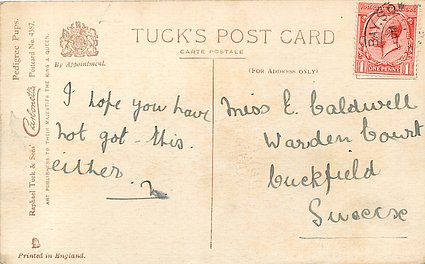 TUCK'S POST CARD
CARTE POSTALE
By Appointment.
(FOR ADDRESS ONLY)
Pedigree Pups.
Postcard No. 4387.
Raphael Tuck & Sons'
ART PUBLISHERS TO THEIR MAJESTIES THE KING & QUEEN.
I hope you have
not got this.
either.
Miss E. Caldwell
Warden Court
Cuckfield
Sussex
ONE PENNY
1 1
Printed in England.